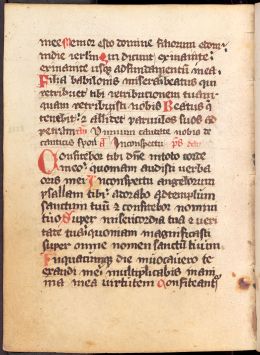 mee Memor esto domine filiorum edom i
ndie ierlm Qui dicunt exinanite
exinanite usq ad fundamentū in ea
Filia babilonis misera beatus qui
retribuet tibi retributionem tuam
quam retribuisti nobis Beatus q
tenebit et allidet paruulos suos ad
petram an Ymnum cantate nobis de
canticis syon a Inconspectu ps dd
Confitebor tibi dne in toto corde
meo quoniam audisti verba
oris mei Inconspectu angelorum
psallam tibi adorabo ad templum
sanctum tuū et confitebor nomini
tuo Super misericordia tua et veri
tate tua quoniam magnificasti
super omne nomen sanctū tuum
Inquacumq die inuocauero te
exaudi me multiplicabis in ani
ma mea uirtutem Confiteant